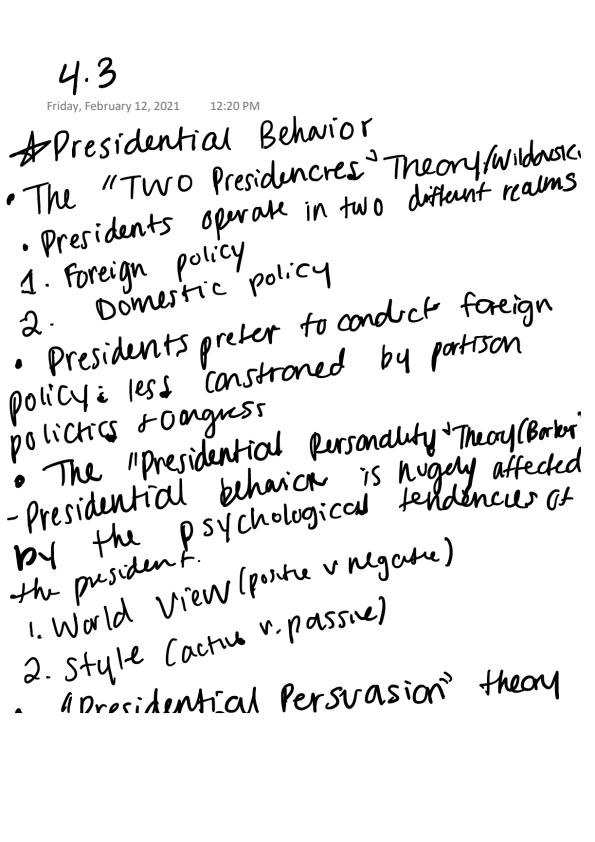 4.3
Friday, February 12, 2021 12:20 PM
☆Presidential Behavior
• The "Two Presidencies" Theory/Wildavsk
• Presidents operate in two different realms
1. Foreign policy
2. Domestic policy
• Presidents prefer to conduct foreign
policy: less constrained by partison
politics + congress
• The "Presidential Personality" Theory (Barber
- Presidential behavior is hugely affected
by the psychological tendencies of
the president.
1. World View (positive v negative)
2. Style (active v. passive)
• "Presidential Persuasion" theory